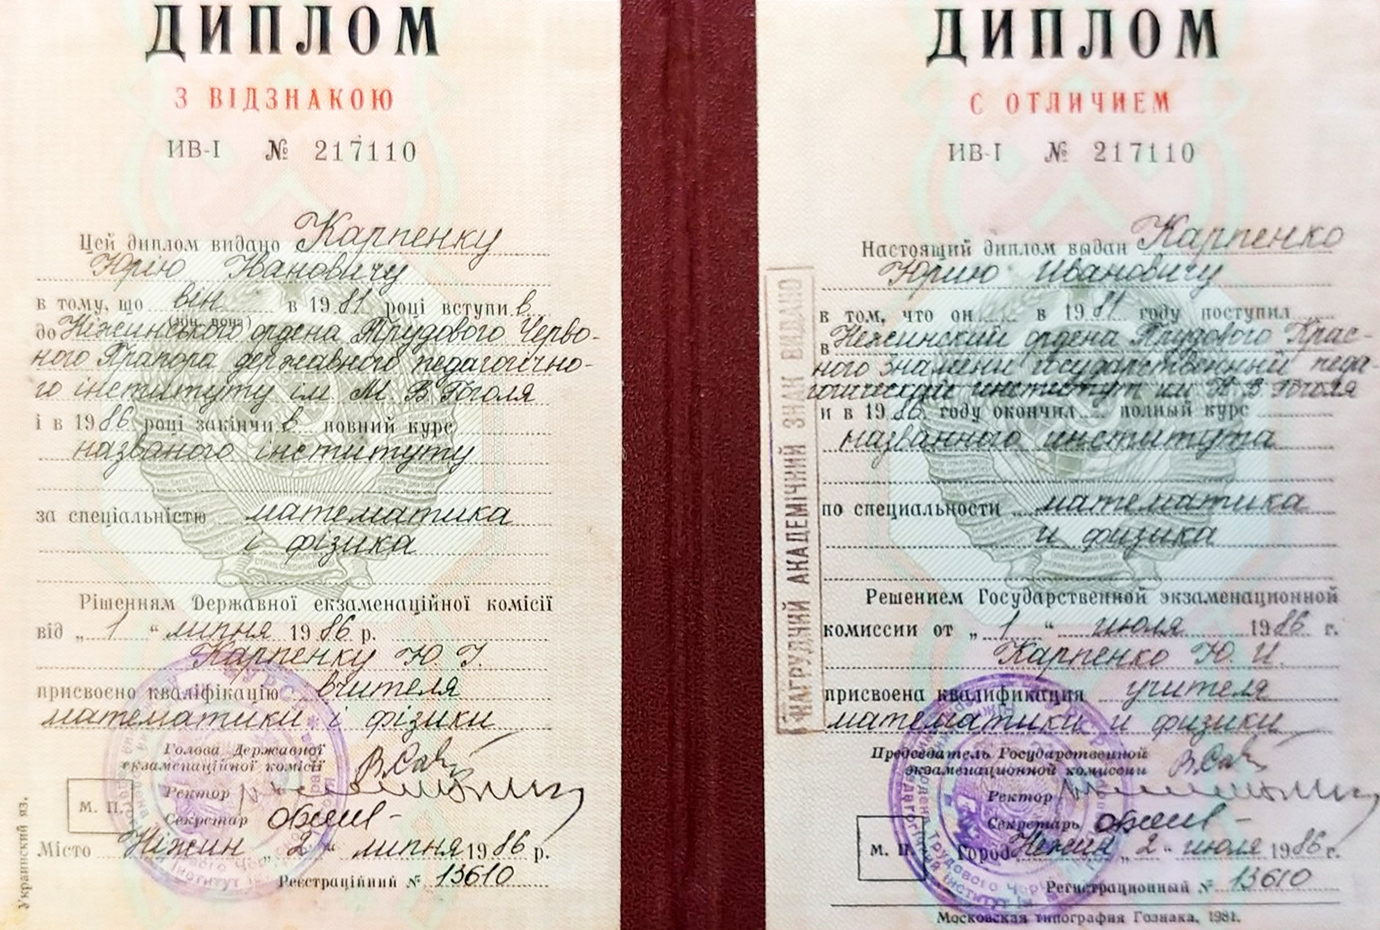 ДИПЛОМ
З ВІДЗНАКОЮ
ИВ-I № 217110
Цей диплом видано Карпенку
Юрію Івановичу
в тому, що він в 1981 році вступив
до Ніжинського ордена Трудового Черво-
ного Прапора державного педагогічно-
го інституту ім М. В. Гоголя
і в 1986 році закінчив повний курс
названого інституту
за спеціальністю математика
і фізика
Рішенням Державної екзаменаційної комісії
від „ 1 “ липня 1986 р.
Карпенку Ю. І.
присвоєно кваліфікацію вчителя
математики і фізики
Голова Державної
екзаменаційної комісії
Ректор
М. П.
Секретар
Місто Ніжин „ 2 “ липня 1986 р.
Реєстраційний № 13610
Украинский яз.
ДИПЛОМ
С ОТЛИЧИЕМ
ИВ-I № 217110
Настоящий диплом выдан Карпенко
Юрию Ивановичу
в том, что он в 1981 году поступил
в Нежинский ордена Трудового Крас-
ного Знамени государственный педа-
гогический институт им Н. В. Гоголя
и в 1986 году окончил полный курс
названного института
по специальности математика
и физика
Решением Государственной экзаменационной
комиссии от „ 1 “ июля 1986 г.
Карпенко Ю. И.
присвоена квалификация учителя
математики и физики
Председатель Государственной
экзаменационной комиссии
Ректор
Секретарь
М. П.
Город Нежин „ 2 “ июля 1986 г.
Регистрационный № 13610
Московская типография Гознака, 1981.
НАГРУДНИЙ АКАДЕМІЧНИЙ ЗНАК ВИДАНО